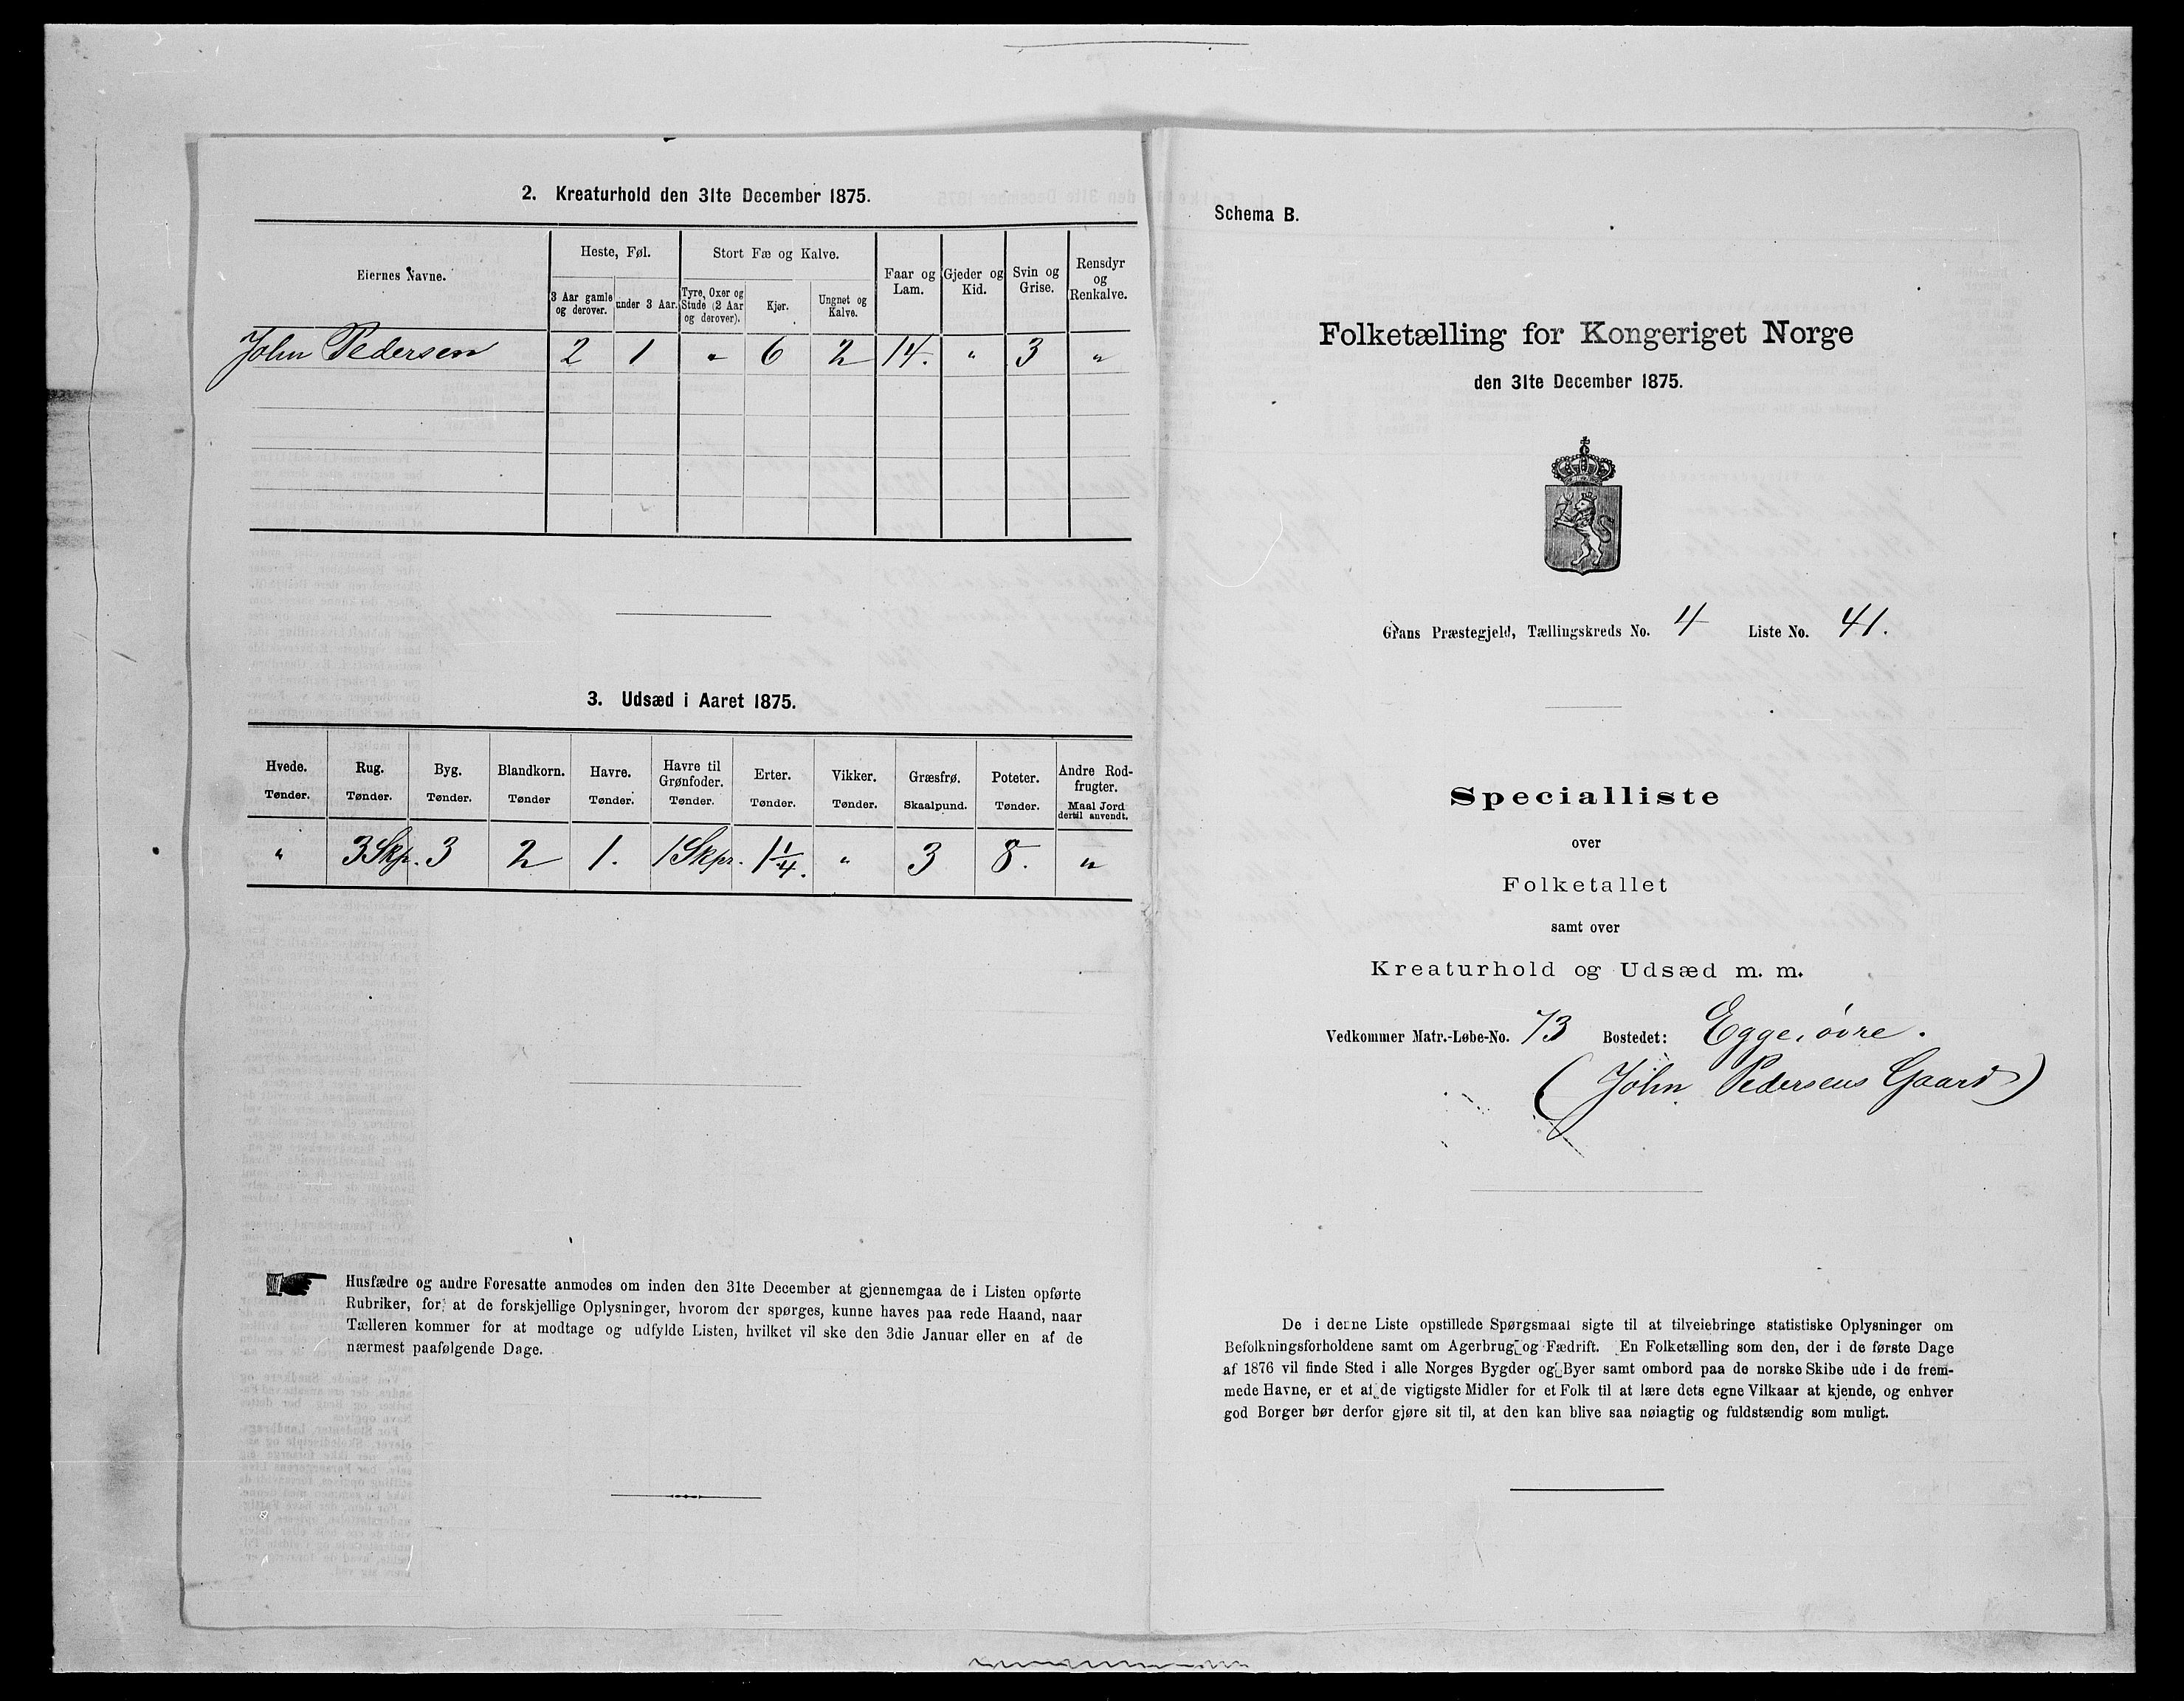 2. Kreaturhold den 31te December 1875.
Eiernes Navne.
Heste, Føl.
Stort Fæ og Kalve.
Faar og Lam.
Gjeder og Kid.
Svin og Grise.
Rensdyr og Renkalve.
3 Aar gamle og derover.
under 3 Aar.
Tyre, Oxer og Stude (2 Aar og derover).
Kjør.
Ungnøt og Kalve.
John Pedersen 2 1 " 6 2 14. " 3 "
3. Udsæd i Aaret 1875.
Hvede. Rug. Byg. Blandkorn. Havre. Havre til Grønfoder. Erter. Vikker. Græsfrø. Poteter. Andre Rodfrugter.
Tønder. Tønder. Tønder. Tønder Tønder. Tønder. Tønder. Tønder. Skaalpund. Tønder. Maal Jord dertil anvendt.
" 3 Skp. 3 2 1. 1 Skpr. 1 1/4. " 3 8. "
Husfædre og andre Foresatte anmodes om inden den 31te December at gjennemgaa de i Listen opførte
Rubriker, for at de forskjellige Oplysninger, hvorom der spørges, kunne haves paa rede Haand, naar
Tælleren kommer for at modtage og udfylde Listen, hvilket vil ske den 3die Januar eller en af de
nærmest paafølgende Dage.
Schema B.
Folketælling for Kongeriget Norge
den 31te December 1875.
Grans Præstegjeld, Tællingskreds No. 4 Liste No. 41.
Specialliste
over
Folketallet
samt over
Kreaturhold og Udsæd m. m.
Vedkommer Matr.-Løbe-No. 73 Bostedet: Egge, øvre.
(John Pedersens Gaard)
De i denne Liste opstillede Spørgsmaal sigte til at tilveiebringe statistiske Oplysninger om
Befolkningsforholdene samt om Agerbrug og Fædrift. En Folketælling som den, der i de første Dage
af 1876 vil finde Sted i alle Norges Bygder og Byer samt ombord paa de norske Skibe ude i de frem-
mede Havne, er et af de vigtigste Midler for et Folk til at lære dets egne Vilkaar at kjende, og enhver
god Borger bør derfor gjøre sit til, at den kan blive saa nøiagtig og fuldstændig som muligt.